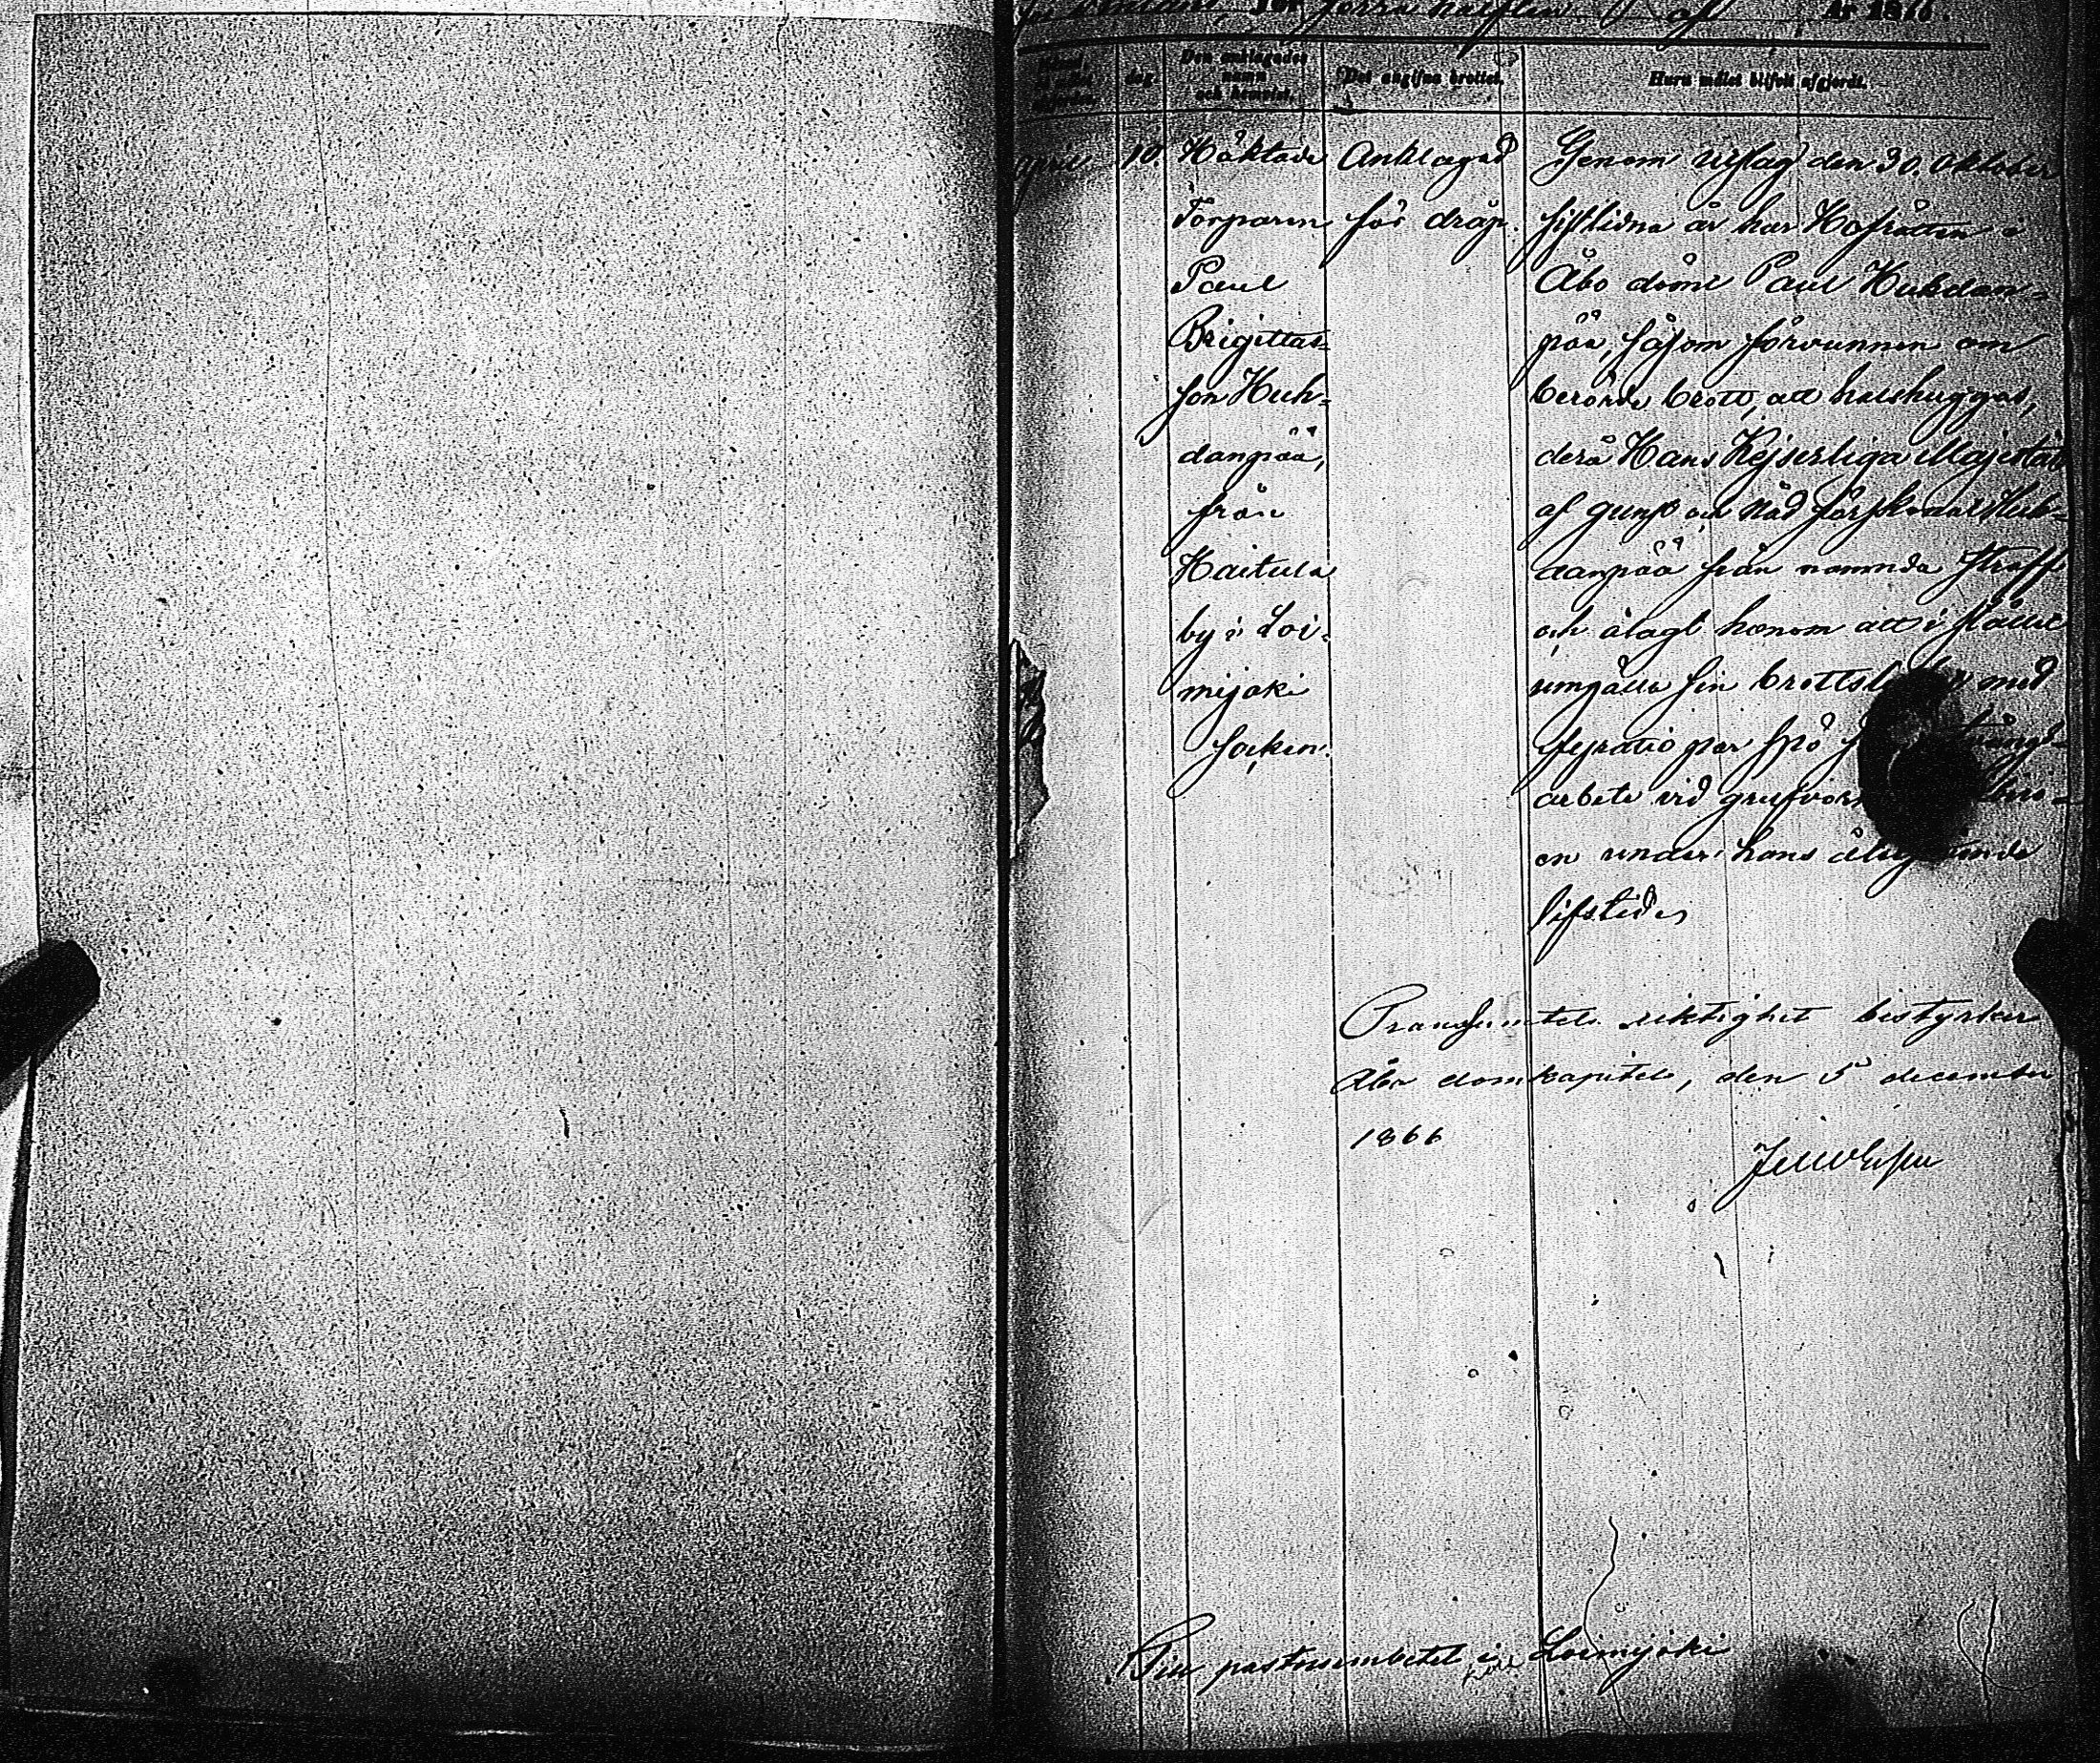 för förra hälften af År 1866.
dag. Den anklagades namn och hemvist. Det angifna brottet. Huru målet blifvit afgjordt.
April 10. Häktade Anklagad Genom utslag den 30. Oktober
Torparen för dråp. sistlidna år har Hofrätten i
Paul Åbo dömt Paul Huhdan=
Brigittas= pää, såsom förvunnen om
son Huh= berörde brott, att halshuggas,
danpää, derå Hans Kejserliga Majestät
från af gunst och nåd förskonat Huh=
Haitula danpää från nämnda straff
by i Loi= och ålagt honom att i stället
mijoki umgälla sin med
socken. fyratio par spö
arbete vid
en under hans
lifstid.
Transumtets riktighet bestyrker
Åbo domkapitel, den 5 december
1866
Till pastorsembetet i Loimijoki